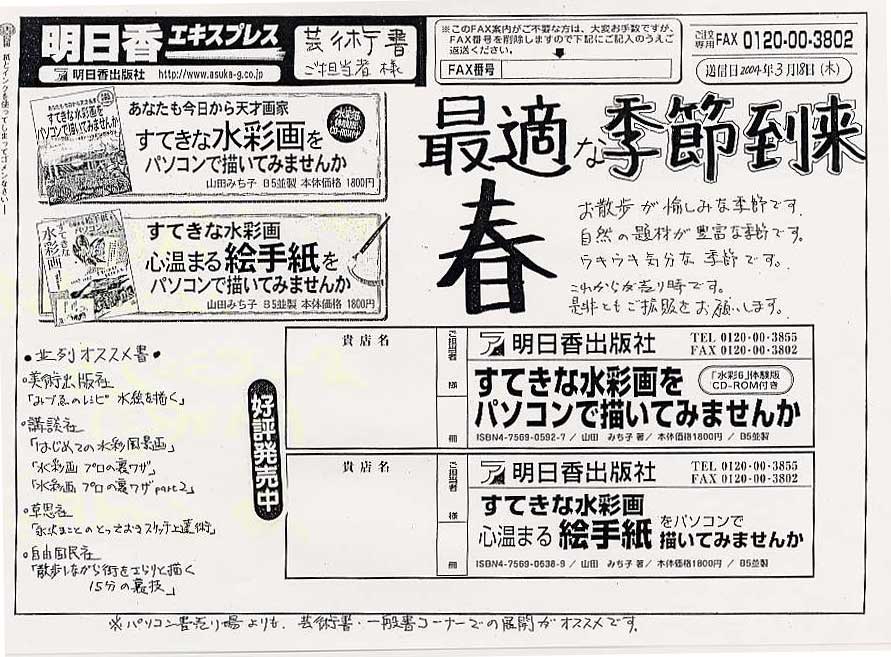 明日香エキスプレス
明日香出版社 http://www.asuka-g.co.jp/
芸術書
ご担当者 様
※このFAX案内がご不要な方は、大変お手数ですが、
FAX番号を削除しますので下記にご記入のうえご
返送ください。
FAX番号
ご注文専用 FAX 0120-00-3802
送信日2004年3月18日(木)
あなたも今日から天才画家
すてきな水彩画を
パソコンで描いてみませんか
山田みち子 B5並製 本体価格 1800円
すてきな水彩画
心温まる絵手紙を
パソコンで描いてみませんか
山田みち子 B5並製 本体価格 1800円
最適な季節到来
春
お散歩が愉しみな季節です。
自然の題材が豊富な季節です。
ウキウキ気分な季節です。
これからが売り時です。
是非ともご拡販をお願いします。
●並列オススメ書●
・美術出版社
「みづゑのレシピ 水絵を描く」
・講談社
「はじめての水彩風景画」
「水彩画 プロの裏ワザ」
「水彩画 プロの裏ワザ part2」
・草思社
「永沢まことのとっておきスケッチ上達術」
・自由国民社
「散歩しながら街をさらりと描く
15分の裏技」
好評発売中
貴店名
ご担当者
様
冊
明日香出版社
TEL 0120-00-3855
FAX 0120-00-3802
すてきな水彩画を
「水彩6」体験版
CD-ROM付き
パソコンで描いてみませんか
ISBN4-7569-0592-7/山田 みち子 著/本体価格1800円/B5並製
貴店名
ご担当者
様
冊
明日香出版社
TEL 0120-00-3855
FAX 0120-00-3802
すてきな水彩画
心温まる 絵手紙 をパソコンで
描いてみませんか
ISBN4-7569-0638-9/山田 みち子 著/本体価格1800円/B5並製
※パソコン書売り場よりも、芸術書・一般書コーナーでの展開がオススメです。